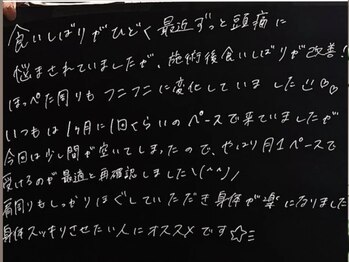 食いしばりがひどく最近ずっと頭痛に
悩まされていましたが、施術後食いしばりが改善!
ほっぺた周りもフニフニに変化していました☺♡♡
いつもは1ヶ月に1回くらいのペースで来ていましたが
今回は少し間が空いてしまったので、やっぱり月1ペースで
受けるのが最適と再確認しました\(^^)/
肩周りもしっかりほぐしていただき身体が楽になりました
身体スッキリさせたい人にオススメです☆ミ